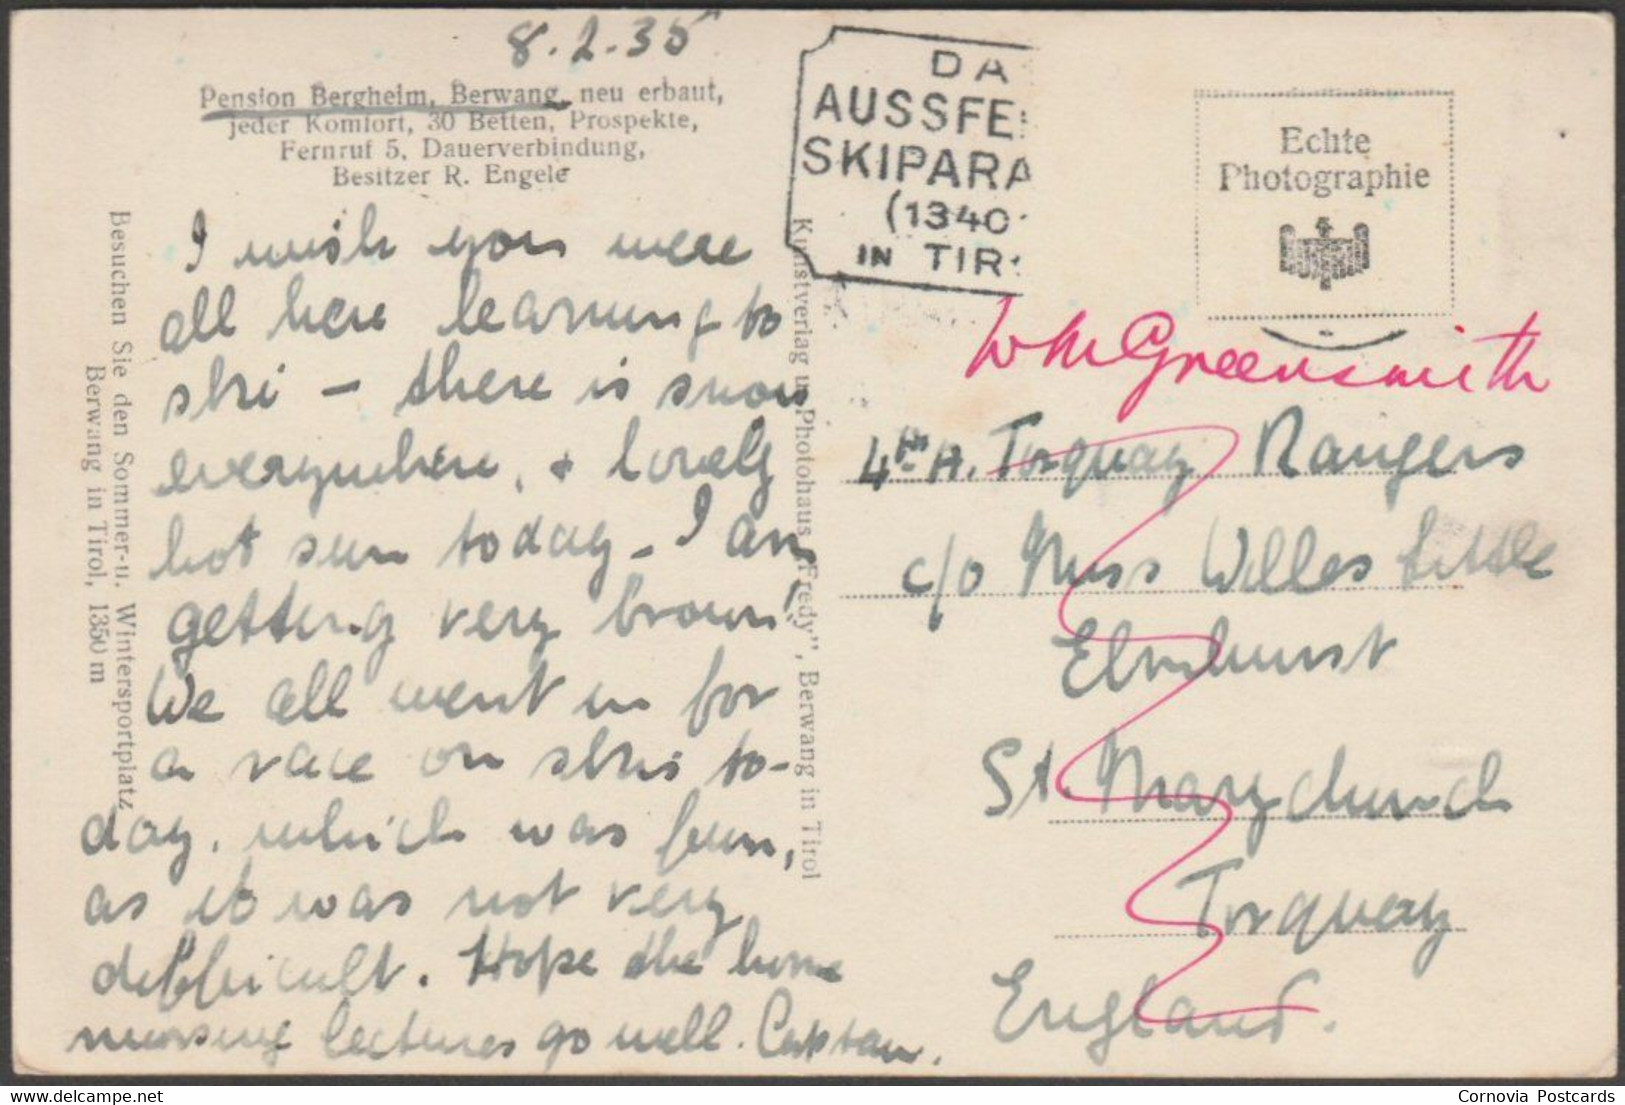 8.2.35
Pension Bergheim, Berwang, neu erbaut,
jeder Komfort, 30 Betten, Prospekte,
Fernruf 5, Dauerverbindung,
Besitzer R. Engele
I wish you were
all here learning to
ski – there is snow
everywhere, & lovely
hot sun today – I am
getting very brown!
We all went in for
a race on skis to-
day, which was fun,
as it was not very
difficult. Hope the home
nursing lectures go well. Captain.
Besuchen Sie den Sommer-u. Wintersportplatz
Berwang in Tirol, 1350 m
Kunstverlag u. Photohaus „Fredy", Berwang in Tirol
DA
AUSSFE
SKIPARA
(1340
IN TIR
Echte
Photographie
Greensmith
4th A. Torquay Rangers
c/o Miss Willes Little
Elmhurst
St. Marychurch
Torquay
England.
Cornovia Postcards